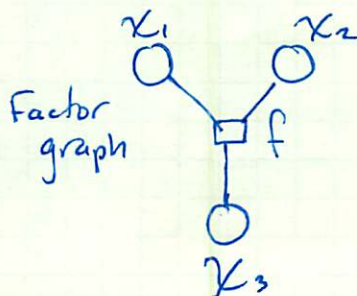 x₁ x₂
Factor
graph
f
x₃